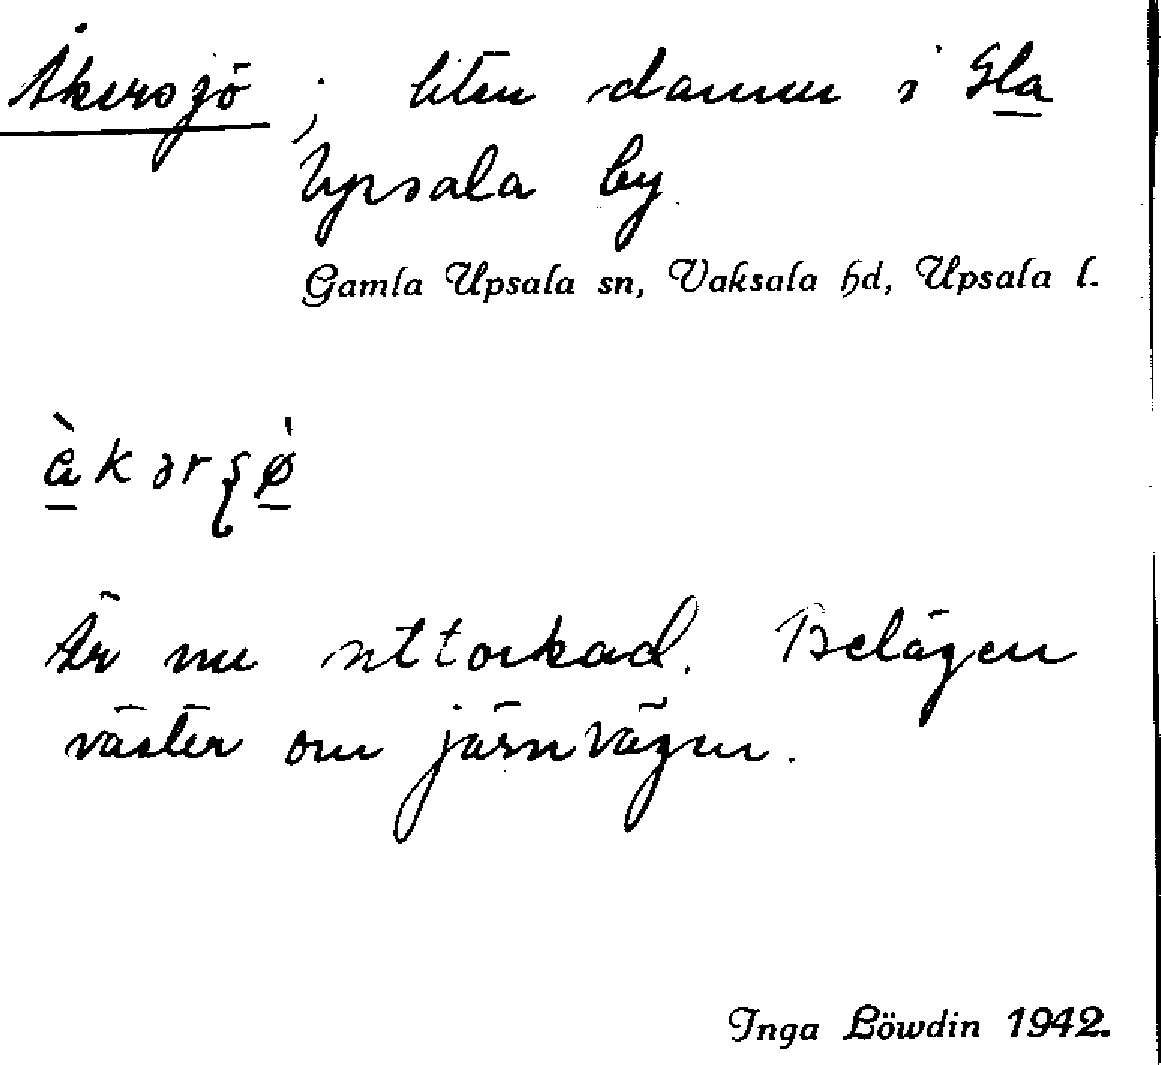 Åkersjö ; liten dammen i Gla
Upsala by.
Gamla Upsala sn, Vaksala hd, Upsala l.
Är nu uttorkad. Belägen
väster om järnvägen.
Inga Löwdin 1942.